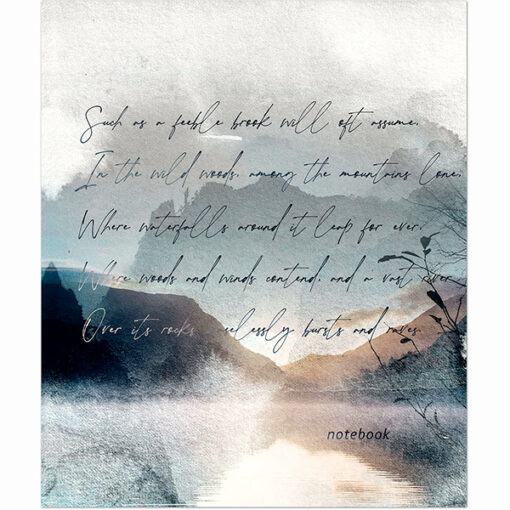 Such as a feeble brook will oft assume.
In the wild woods, among the mountains lone,
Where waterfalls around it leap for ever,
Where woods and winds contend, and a vast river
Over its rocks ceaselessly bursts and raves.
notebook